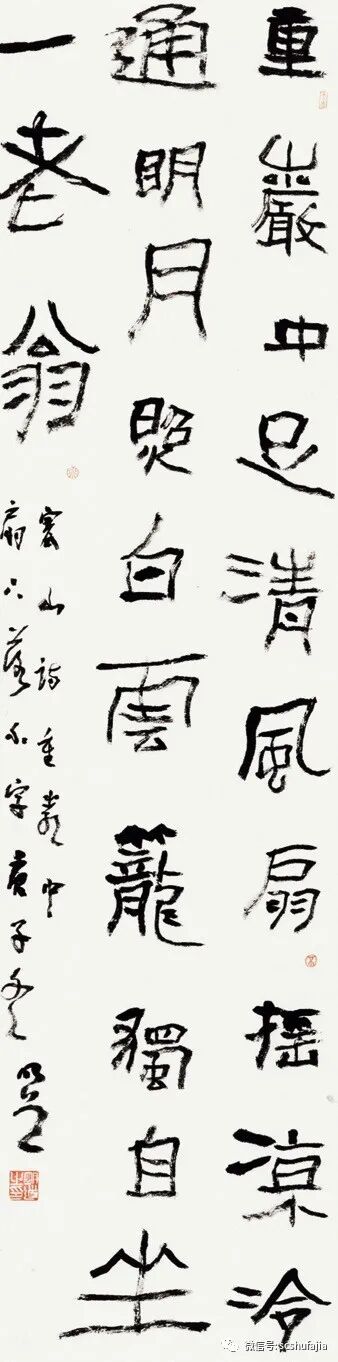 重巖中足清風扇摇涼冷
通明月照白雲籠獨自坐
一老翁
寒山詩重巖中
扇下落不字庚子冬
微信号: scshufajia